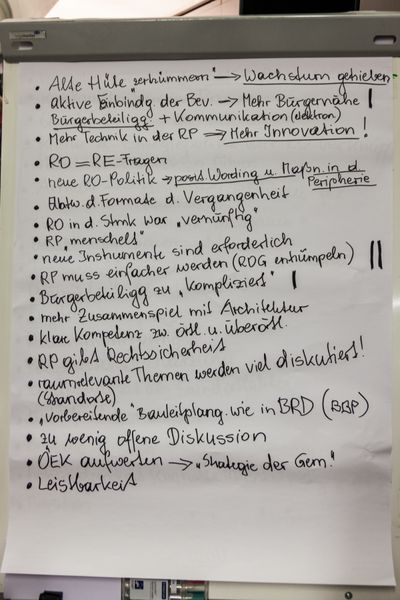 • Alte Hüte „zertrümmern" → Wachstum getrieben
• aktive Einbindg. der Bev. → Mehr Bürgernähe |
Bürgerbeteiligg + Kommunikation (elektron)
• Mehr Technik in der RP ⇒ Mehr Innovation!
• RO = RE-Fragen
• neue RO-Politik → posit. Wording u. Maßn. in d. Peripherie
• Abkw. d. Formate d. Vergangenheit
• RO in d. Stmk war „vernünftig"
• RP „menschelt"
• neue Instrumente sind erforderlich
• RP muss einfacher werden (ROG entrümpeln) ||
• Bürgerbeteiligg zu „kompliziert" |
• mehr Zusammenspiel mit Architektur
• klare Kompetenz zw. örtl. u. überörtl.
• RP gibt Rechtssicherheit
• raumrelevante Themen werden viel diskutiert!
(Standorte)
• „Vorbereitende" Bauleitplang. wie in BRD (BBP)
• zu wenig offene Diskussion
• ÖEK aufwerten → „Strategie der Gem."
• Leistbarkeit